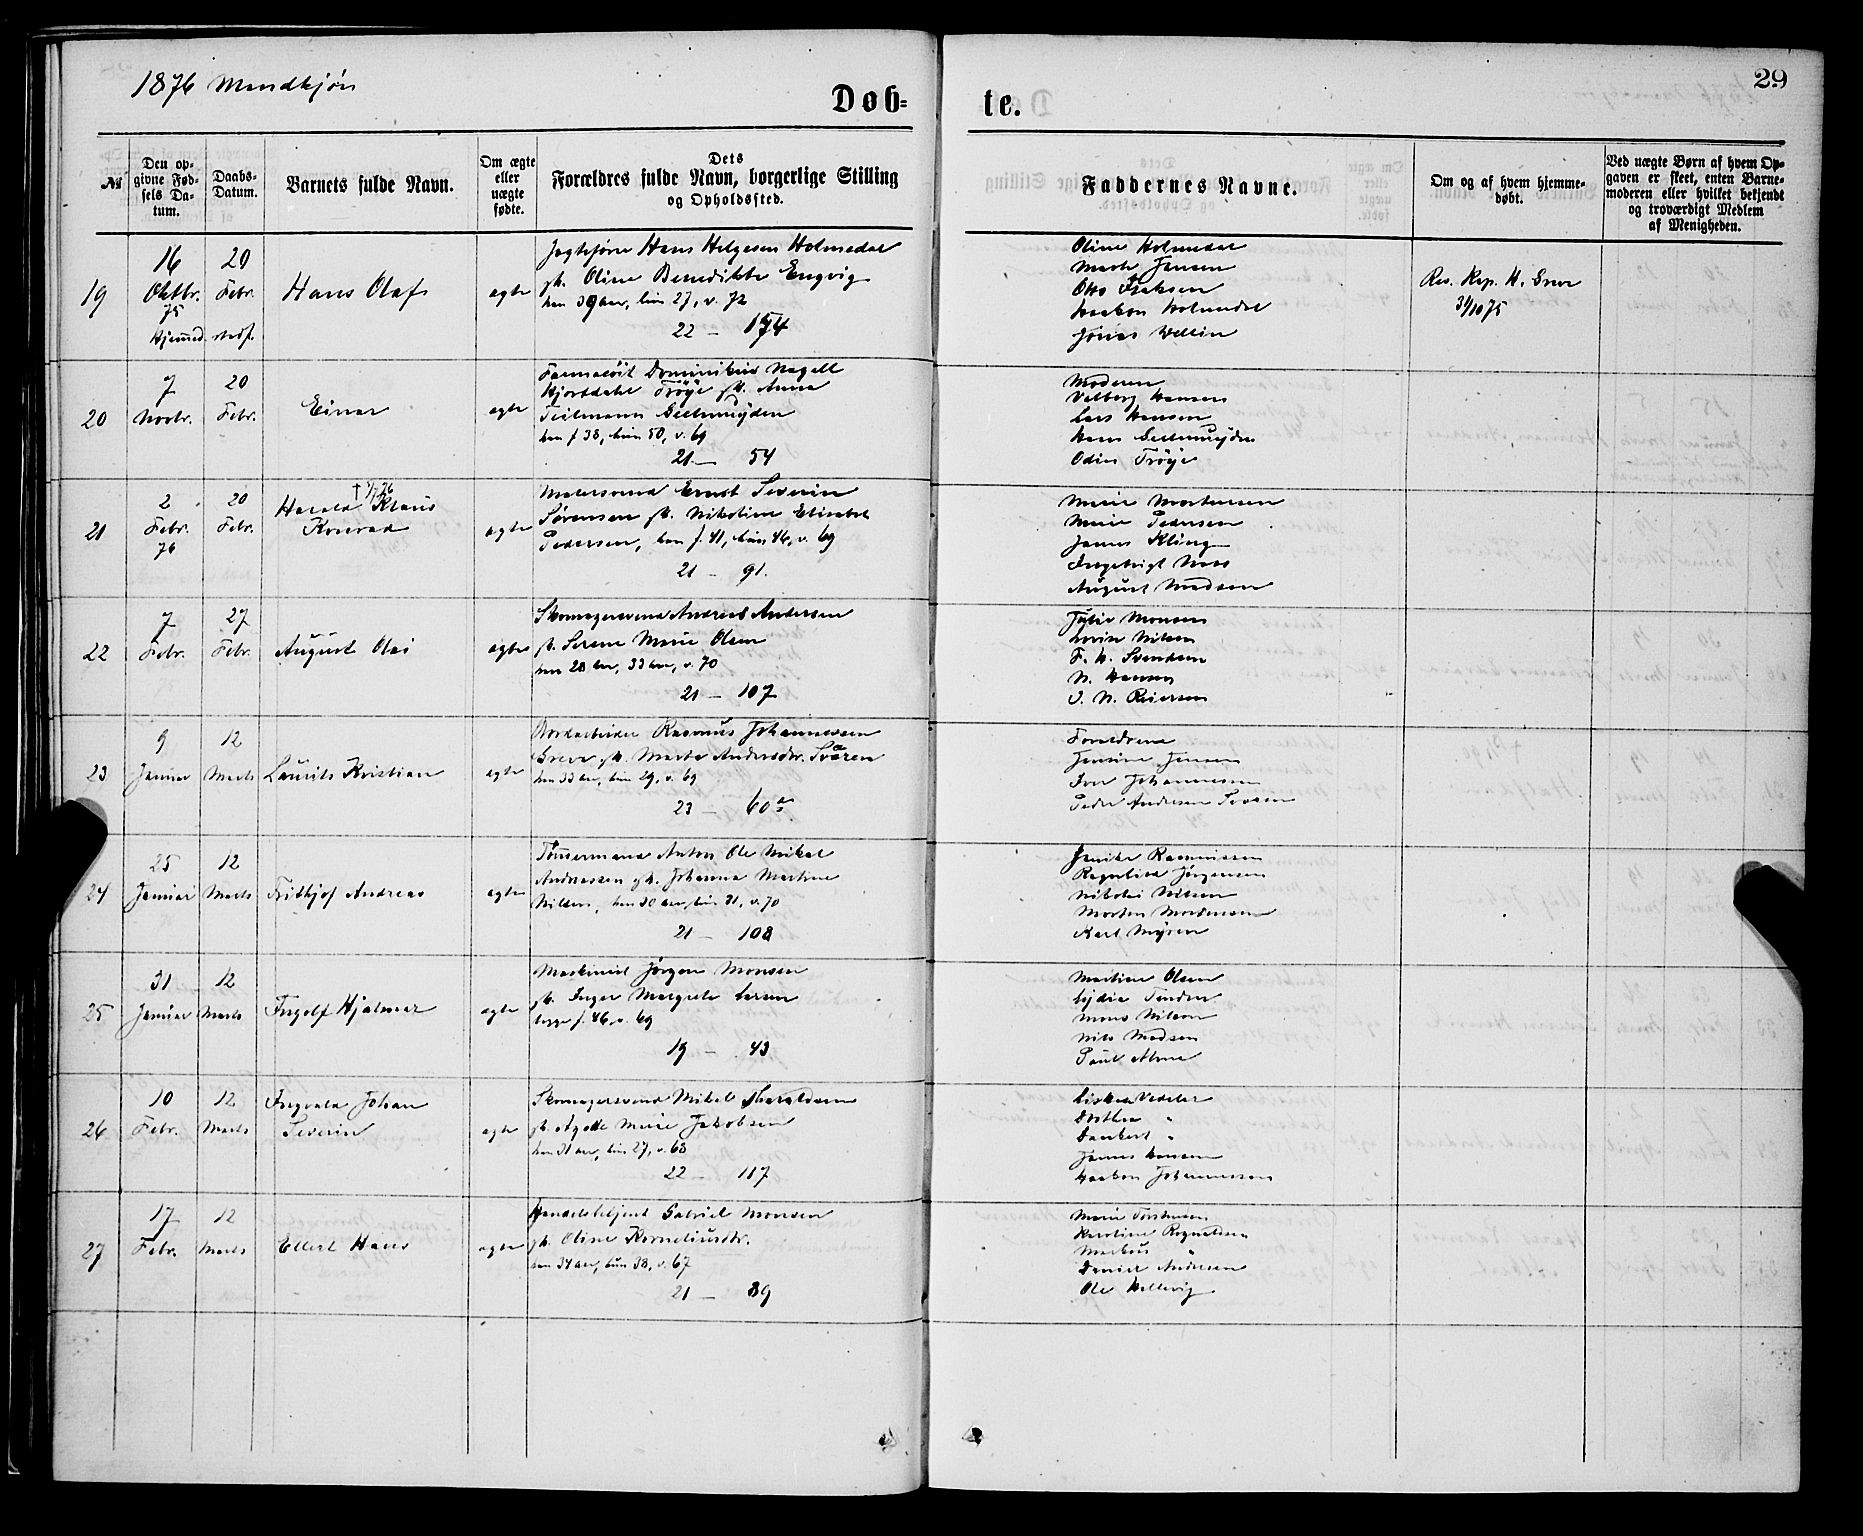 1876 Mandkjøn
29
Døb-
te.
№
Den op-
givne Fød-
sels Da-
tum.
Daabs-
Datum.
Barnets fulde Navn.
Om ægte
eller
uægte
fødte.
Dets
Forældres fulde Navn, borgerlige Stilling
og Opholdssted.
Faddernes Navne.
Om og af hvem hjemme-
døbt.
Ved uægte Børn af hvem Op-
gaven er skeet, enten Barne-
moderen eller hvilket bekjendt
og troværdigt Medlem
af Menigheden.
19
16
Oktbr.
75
Hjemmed. stadf.
20
Febr.
Hans Olaf
ægte
Jagtefører Hans Helgesen Holmedal
gk. Oline Benedikte Engvig
han 39 aar, hun 27, v. 72
22 — 154
Oline Holmedal
Marte Jansen
Otto Isaksen
Haakon Holmedal
Jonas Vellin
Res. Kap. H. Greve
31/10 75
20
7
Novbr.
20
Febr.
Einar
ægte
Dominikus Nagell
Hjortdahl Trøye gk. Anna
Teilmann Seehuusen
han f 38, hun 50, v. 69
21 — 54
Moderen
Valborg Hansen
Lars Hansen
Hans
Odin Trøye
21
2
Febr.
76
20
Febr.
Harald Klaus
Konrad
ægte
Malersvend Ernst Severin
Sørensen gk. Nikoline Elisabet
Pedersen, han f. 41, hun 46, v. 69
21 — 91.
Marie Mortensen
Marie Pedersen
James Kling
Ingebrigt Moss
August Madsen
22
7
Febr.
27
Febr.
August Olai
ægte
Skomagersvend Andreas Andersen
gk. Serene Marie Olsen
han 28 aar, 33 aar, v. 70
21 — 107
Julie Monsen
Lovise Nilsen
F. W. Svendsen
N. Hansen
O. N. Reiersen
23
9
Januar
12
Marts
Laurits Kristian
ægte
Jordarbeider Rasmus Johannessen
Greve gk. Marta Andersdtr. Sværen
han 33 aar, hun 29, v. 69
23 — 60
Forældrene
Jensine Jensen
Iver Johannessen
Peder Andersen Sværen
24
25
Januar
12
Marts
Frithjof Andreas
ægte
Tømermand Anton Ole Mikal
Andreassen gk. Johanna Martine
Nilsen, han 30 aar, hun 31, v. 70
21 — 108
Janike Rasmussen
Ragnhild Jørgensen
Nikolai Nilsen
Morten Mortensen
Karl Myren
25
31
Januar
12
Marts
Ingolf Hjalmar
ægte
Maskinist Jørgen Monsen
gk. Inger Margrete Larsen
begge f. 46, v. 69
19 — 43
Martine Olsen
Lydia
Mons Nilsen
Nils Madsen
Paul Alme
26
10
Febr.
12
Marts
Ingvald Johan
Severin
ægte
Skomagersvend Mikal Haraldsen
gk. Agate Marie Jakobsen
han 31 aar, hun 27, v. 68
22 — 117
Vedeler
Dorthea "
Dankert "
James Hansen
Haakon Johannessen
27
17
Febr.
12
Marts
Ellert Hans
ægte
Handelsbetjent Gabriel Monsen
gk. Oline Korneliusdtr.
han 34 aar, hun 38, v. 67
21 — 89
Marie Torstensen
Karoline Rognaldsen
Markus "
Daniel Andersen
Ole Hellevig